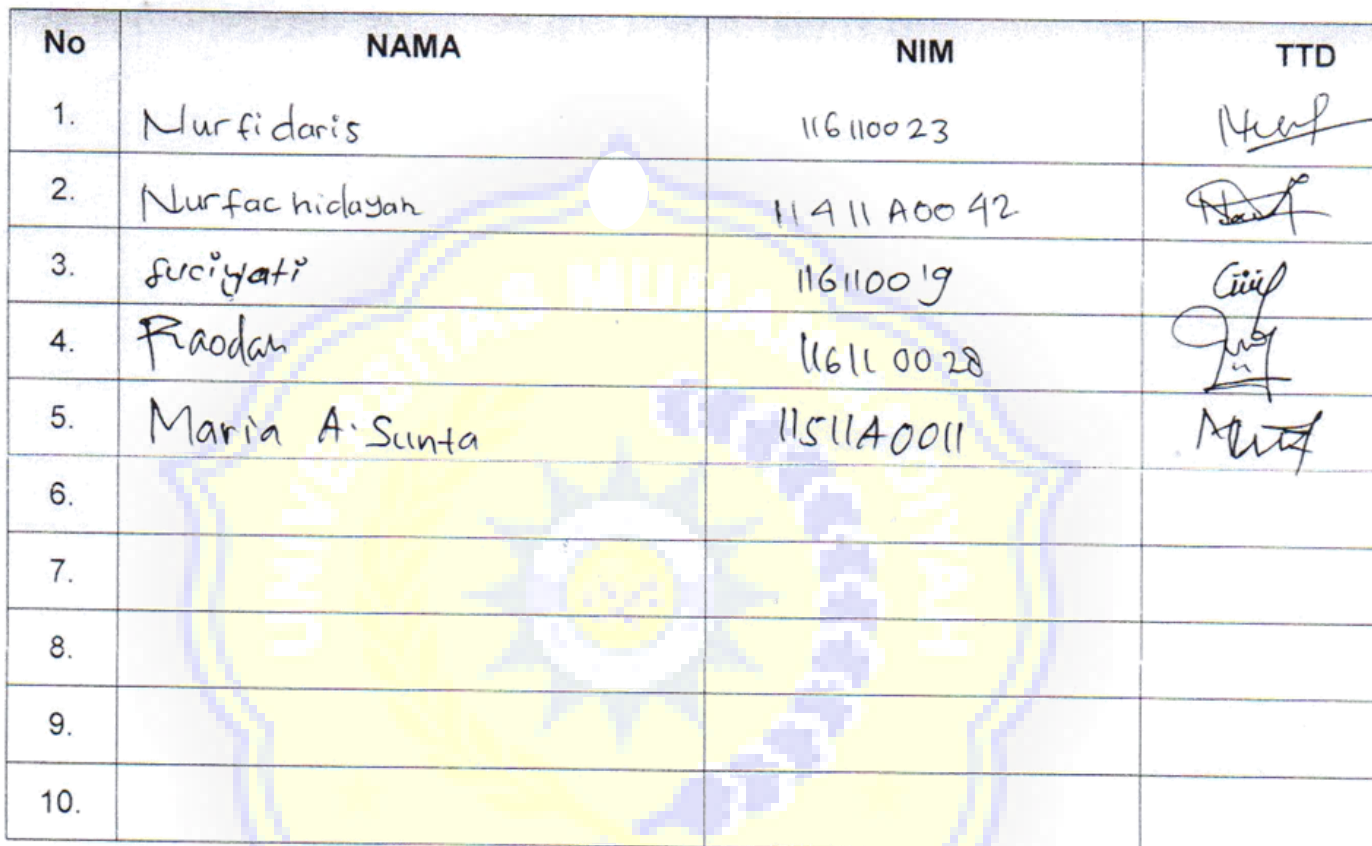 No NAMA NIM TTD
1. Nurfidaris 116110023
2. Nurfachidayah 11411A0042
3. Suciyati 116110019
4. Raodah 11611 0028
5. Maria A. Sunta 11511A0011
6.
7.
8.
9.
10.
UNIVERSITAS MUHAMMADIYAH